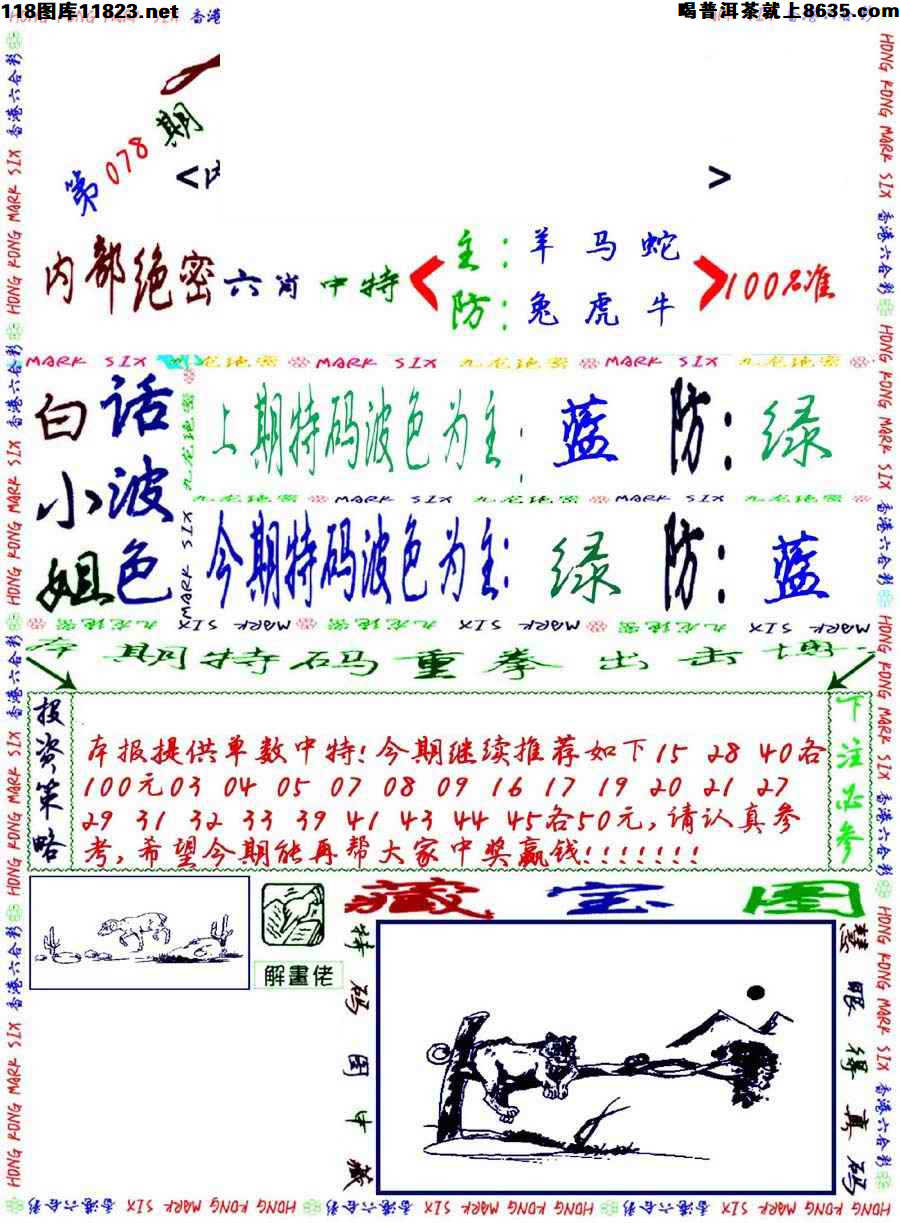 118图库11823.net
喝普洱茶就上8635.com
香港
第078期
<
>
内部绝密六肖中特
主:羊马蛇
防:兔虎牛
100%准
MARK SIX 九龙绝密 MARK SIX 九龙绝密 MARK SIX 九龙绝密
白话小波姐色
上期特码波色为主:蓝 防:绿
九龙绝密 MARK SIX 九龙绝密 MARK SIX
今期特码波色为主:绿 防:蓝
九龙绝密 MARK SIX 九龙绝密 MARK SIX 九龙绝密 MARK SIX
期特码重拳出击
投资策略
本报提供单数中特!今期继续推荐如下15 28 40各
100元03 04 05 07 08 09 16 17 19 20 21 27
29 31 32 33 39 41 43 44 45各50元,请认真参
考,希望今期能再帮大家中奖赢钱!!!!!!!
下注必参
解畫佬
藏宝图
特码图中藏
慧眼得真码
HONG KONG MARK SIX 香港六合彩